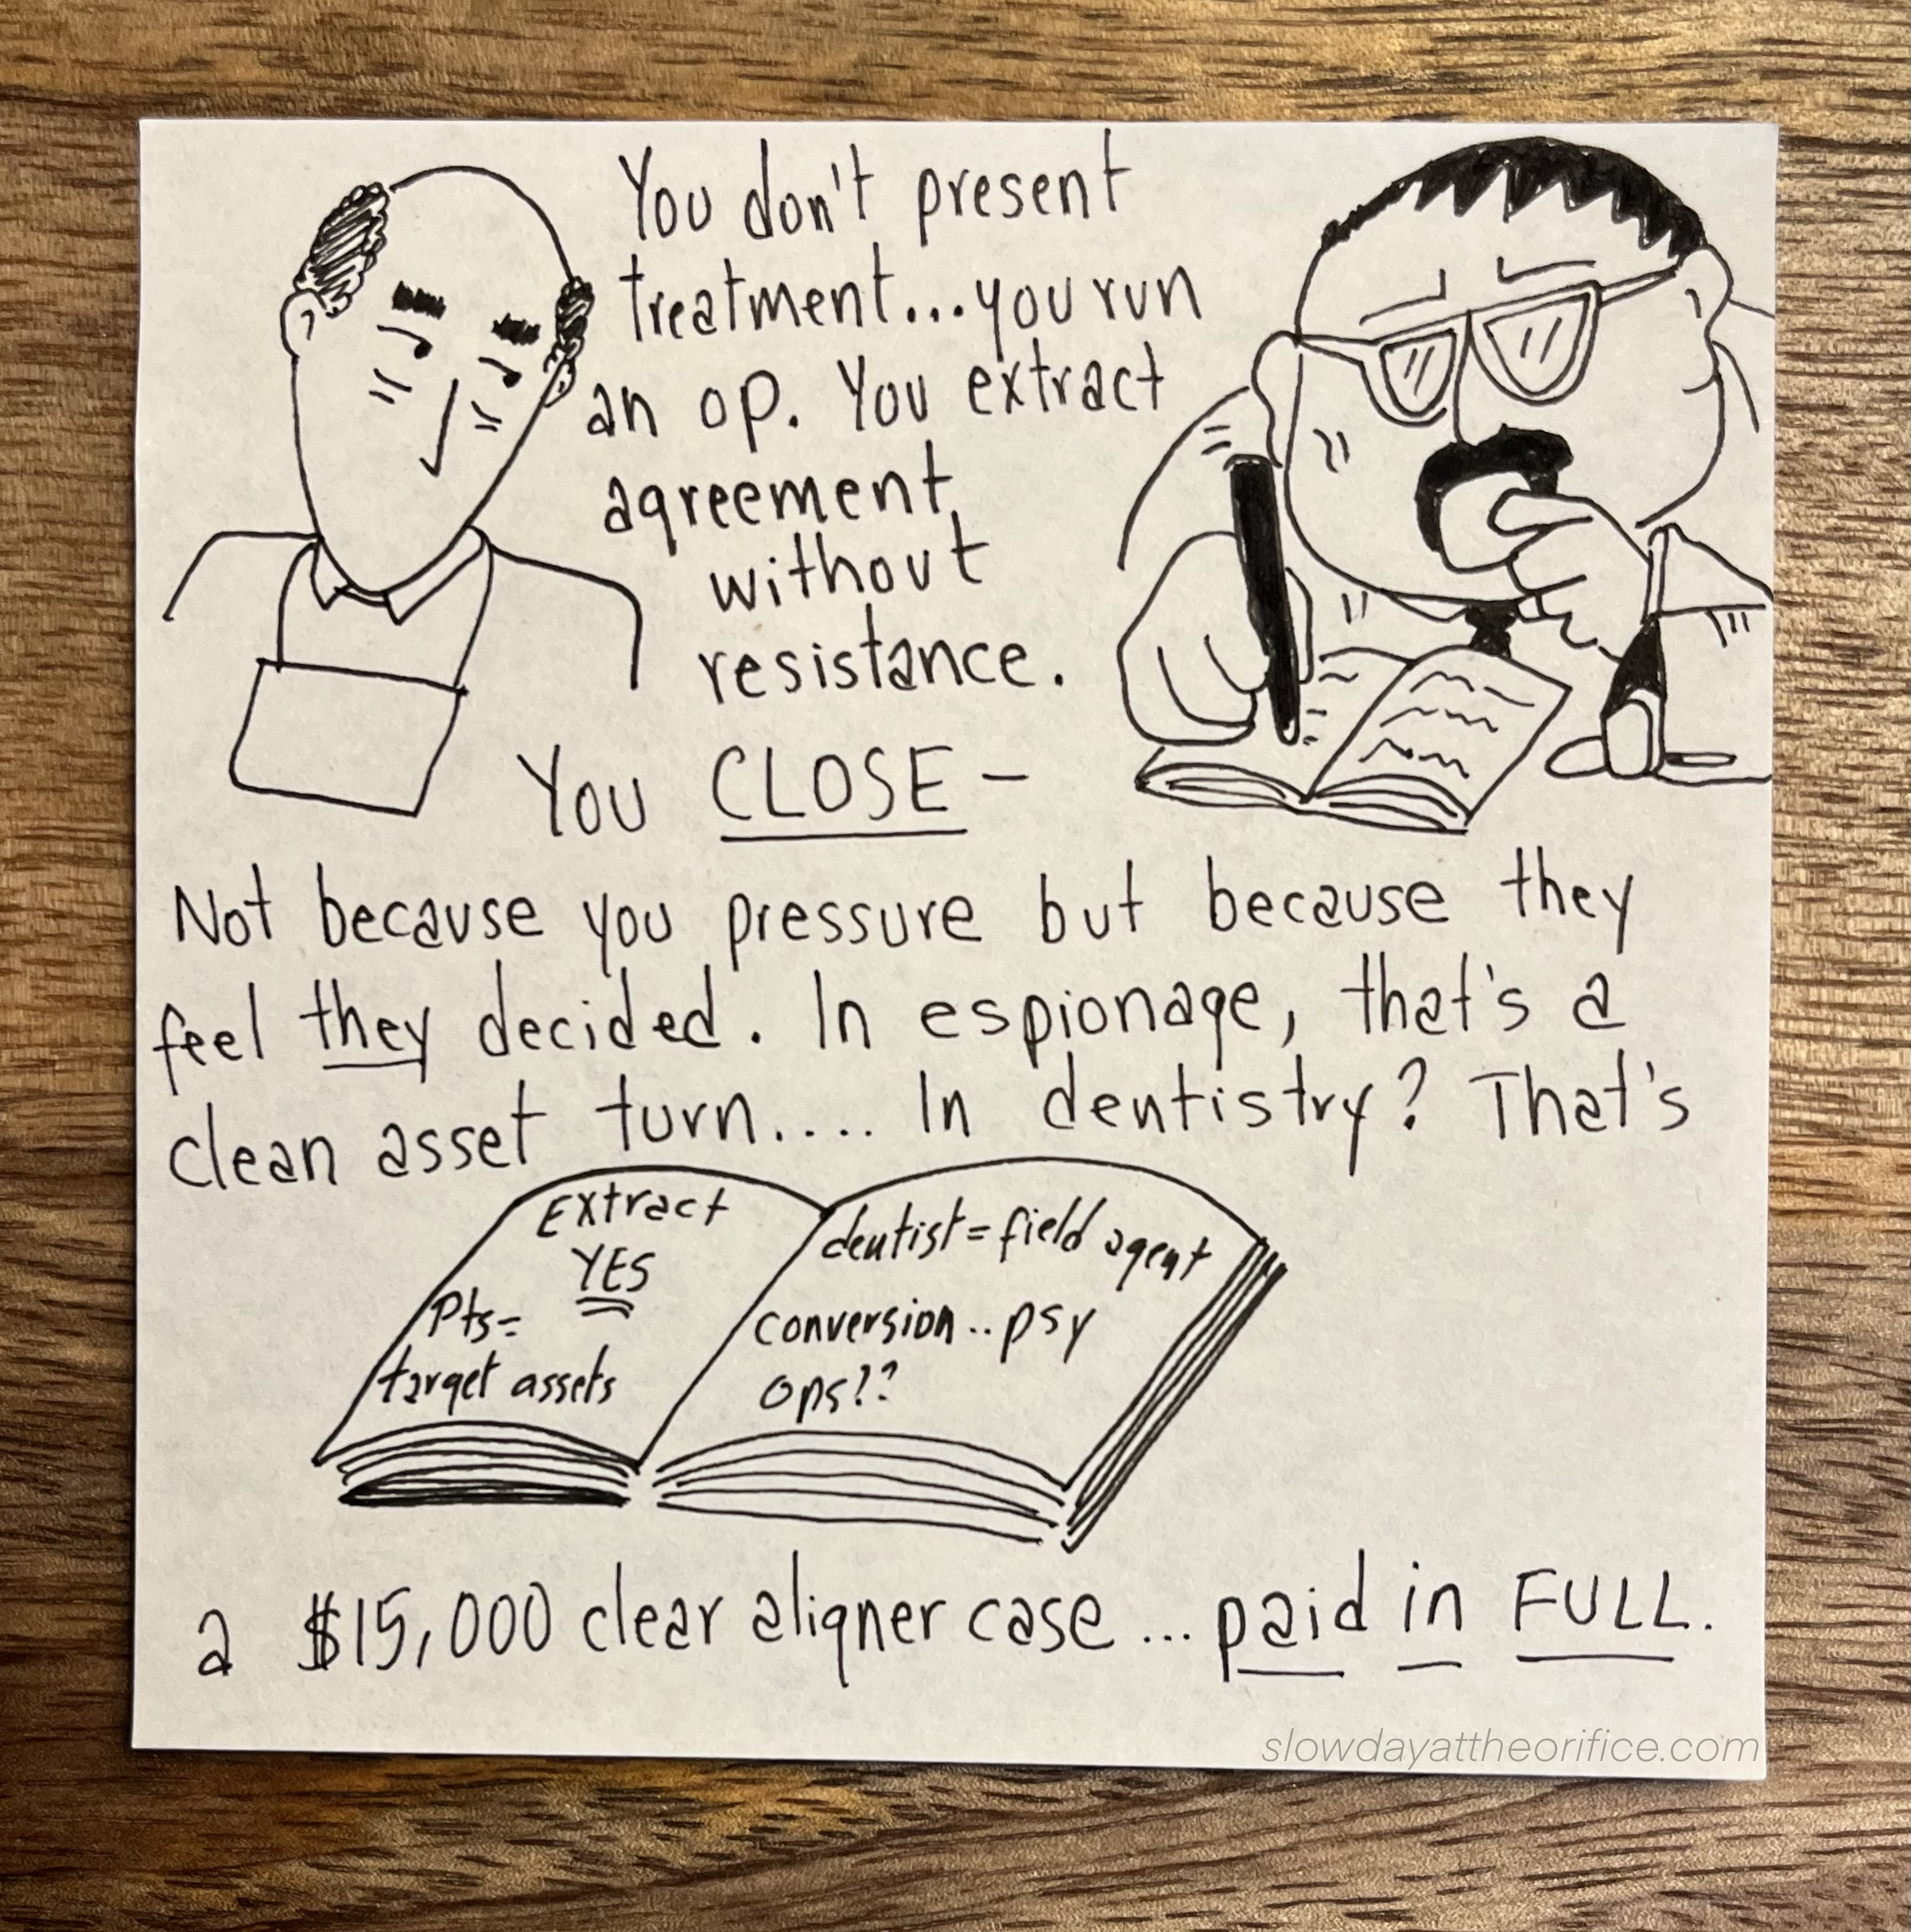 You don't present
treatment...you run
an op. You extract
agreement
without
resistance.
You CLOSE -
Not because you pressure but because they
feel they decided. In espionage, that's a
clean asset turn.... In dentistry? That's
Extract
YES
Pts=
target assets
dentist=field agent
conversion..psy
ops??
a $15,000 clear aligner case...paid in FULL.
slowdayattheorifice.com